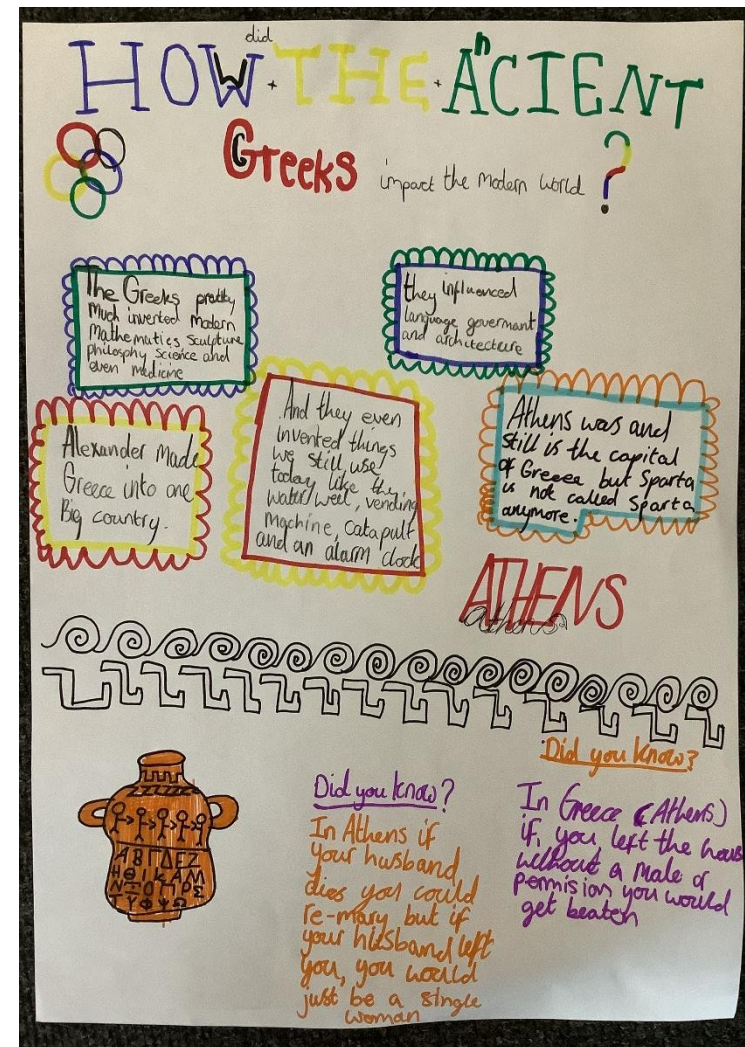 HOW did THE ANCIENT
Greeks impact the modern world ?
The Greeks pretty
much invented modern
mathematics sculpture
philosphy science and
even medicine
they influenced
language goverment
and architecture
Alexander made
Greece into one
Big country.
And they even
invented things
we still use
today like the
water well, vending
machine, catapult
and an alarm clock
Athens was and
still is the capital
of Greece but Sparta
is not called Sparta
anymore.
ATHENS
athens
Did you know?
In Athens if
your husband
dies you could
re-mary but if
your husband left
you, you would
just be a single
woman
Did you know?
In Greece (Athens)
if, you left the
without a male or
permision you would
get beaten
ΑΒΓΔΕΖ
ΗΘΙΚΛΜ
ΝΞΟΠΡΣ
ΤΥΦΨΩ